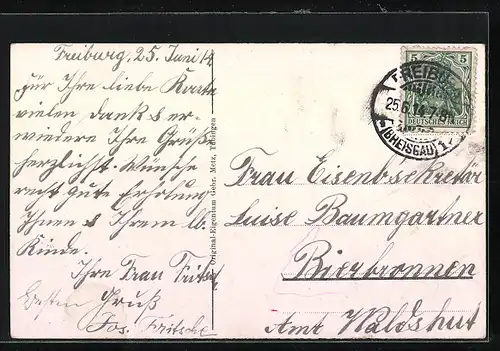 Freiburg, 25. Juni 14
für Ihre liebe Karte
vielen dank & er-
wiedere Ihre Grüße
herzlichst. Wünsche
recht gute Erholung
Ihnen & Ihrem lb.
Kinde.
Ihre Frau Fritsche
Besten Gruß
Jos. Fritsche
Original-Eigentum Gebr. Metz, Tübingen
5 5
DEUTSCHES REICH
FREIBURG
25.6.14.7-8N.
(BREISGAU) 1
Frau Eisenbsekretär
Luise Baumgartner
Bierbronnen
Amt Waldshut